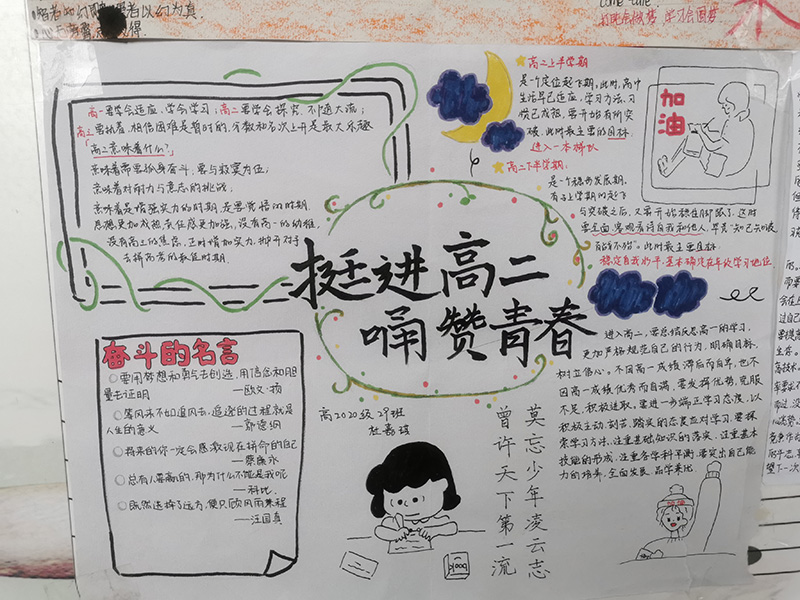 高一要学会适应，学会学习；高二要学会探究，不随大流；
高三要执着，相信困难是暂时的，分数和名次上升是最大乐趣
「高二意味着什么？」
意味着需要孤身奋斗，要与寂寞为伍；
意味着对耐力与意志的挑战；
意味着是增强实力的时期，是要觉悟的时期
思想更加成熟，责任感更加强，没有高一的幼稚，
没有高三的焦虑，正时增加实力，拼开对手
去拼高考的最佳时期
★高二上半学期
是一个定位起飞期。此时，高中
生活早已适应，学习方法、习
惯已成型，要开始有所突
破，此时最主要的目标：
进入一本梯队
★高二下半学期：
是一个稳步发展期。
有了上学期的起飞
与突破之后，又要开始稳住阵脚了。这时
要全面、客观看待自我和他人，早点“知己知彼
百战不殆”。此时最主要目标：
稳定自我水平，基本确定在年级学习地位
加油
挺进高二
唷赞青春
高2020级29班
莫忘少年凌云志
曾许天下第一流
奋斗的名言
要用梦想和勇气去创造，用信念和胆
量去证明
——欧文·杨
等风来不如追风去，追逐的过程就是
人生的意义
——郭德纲
将来的你一定会感激现在拼命的自己
——蔡康永
总有人要赢的，那为什么不能是我呢
——科比
既然选择了远方，便只顾风雨兼程
——汪国真
进入高二，要总结反思高一的学习，
更加严格规范自己的行为，明确目标，
树立信心。不因高一成绩滞后而自卑，也不
因高一成绩优秀而自满，要发挥优势，克服
不足，积极进取。要进一步端正学习态度，以
积极主动、刻苦、踏实的态度应对学习，要探
索学习方法，注重基础知识的落实，注重基本
技能的形成，注重各学科平衡，要突出自己能
力的培养，全面发展，品学兼优
book